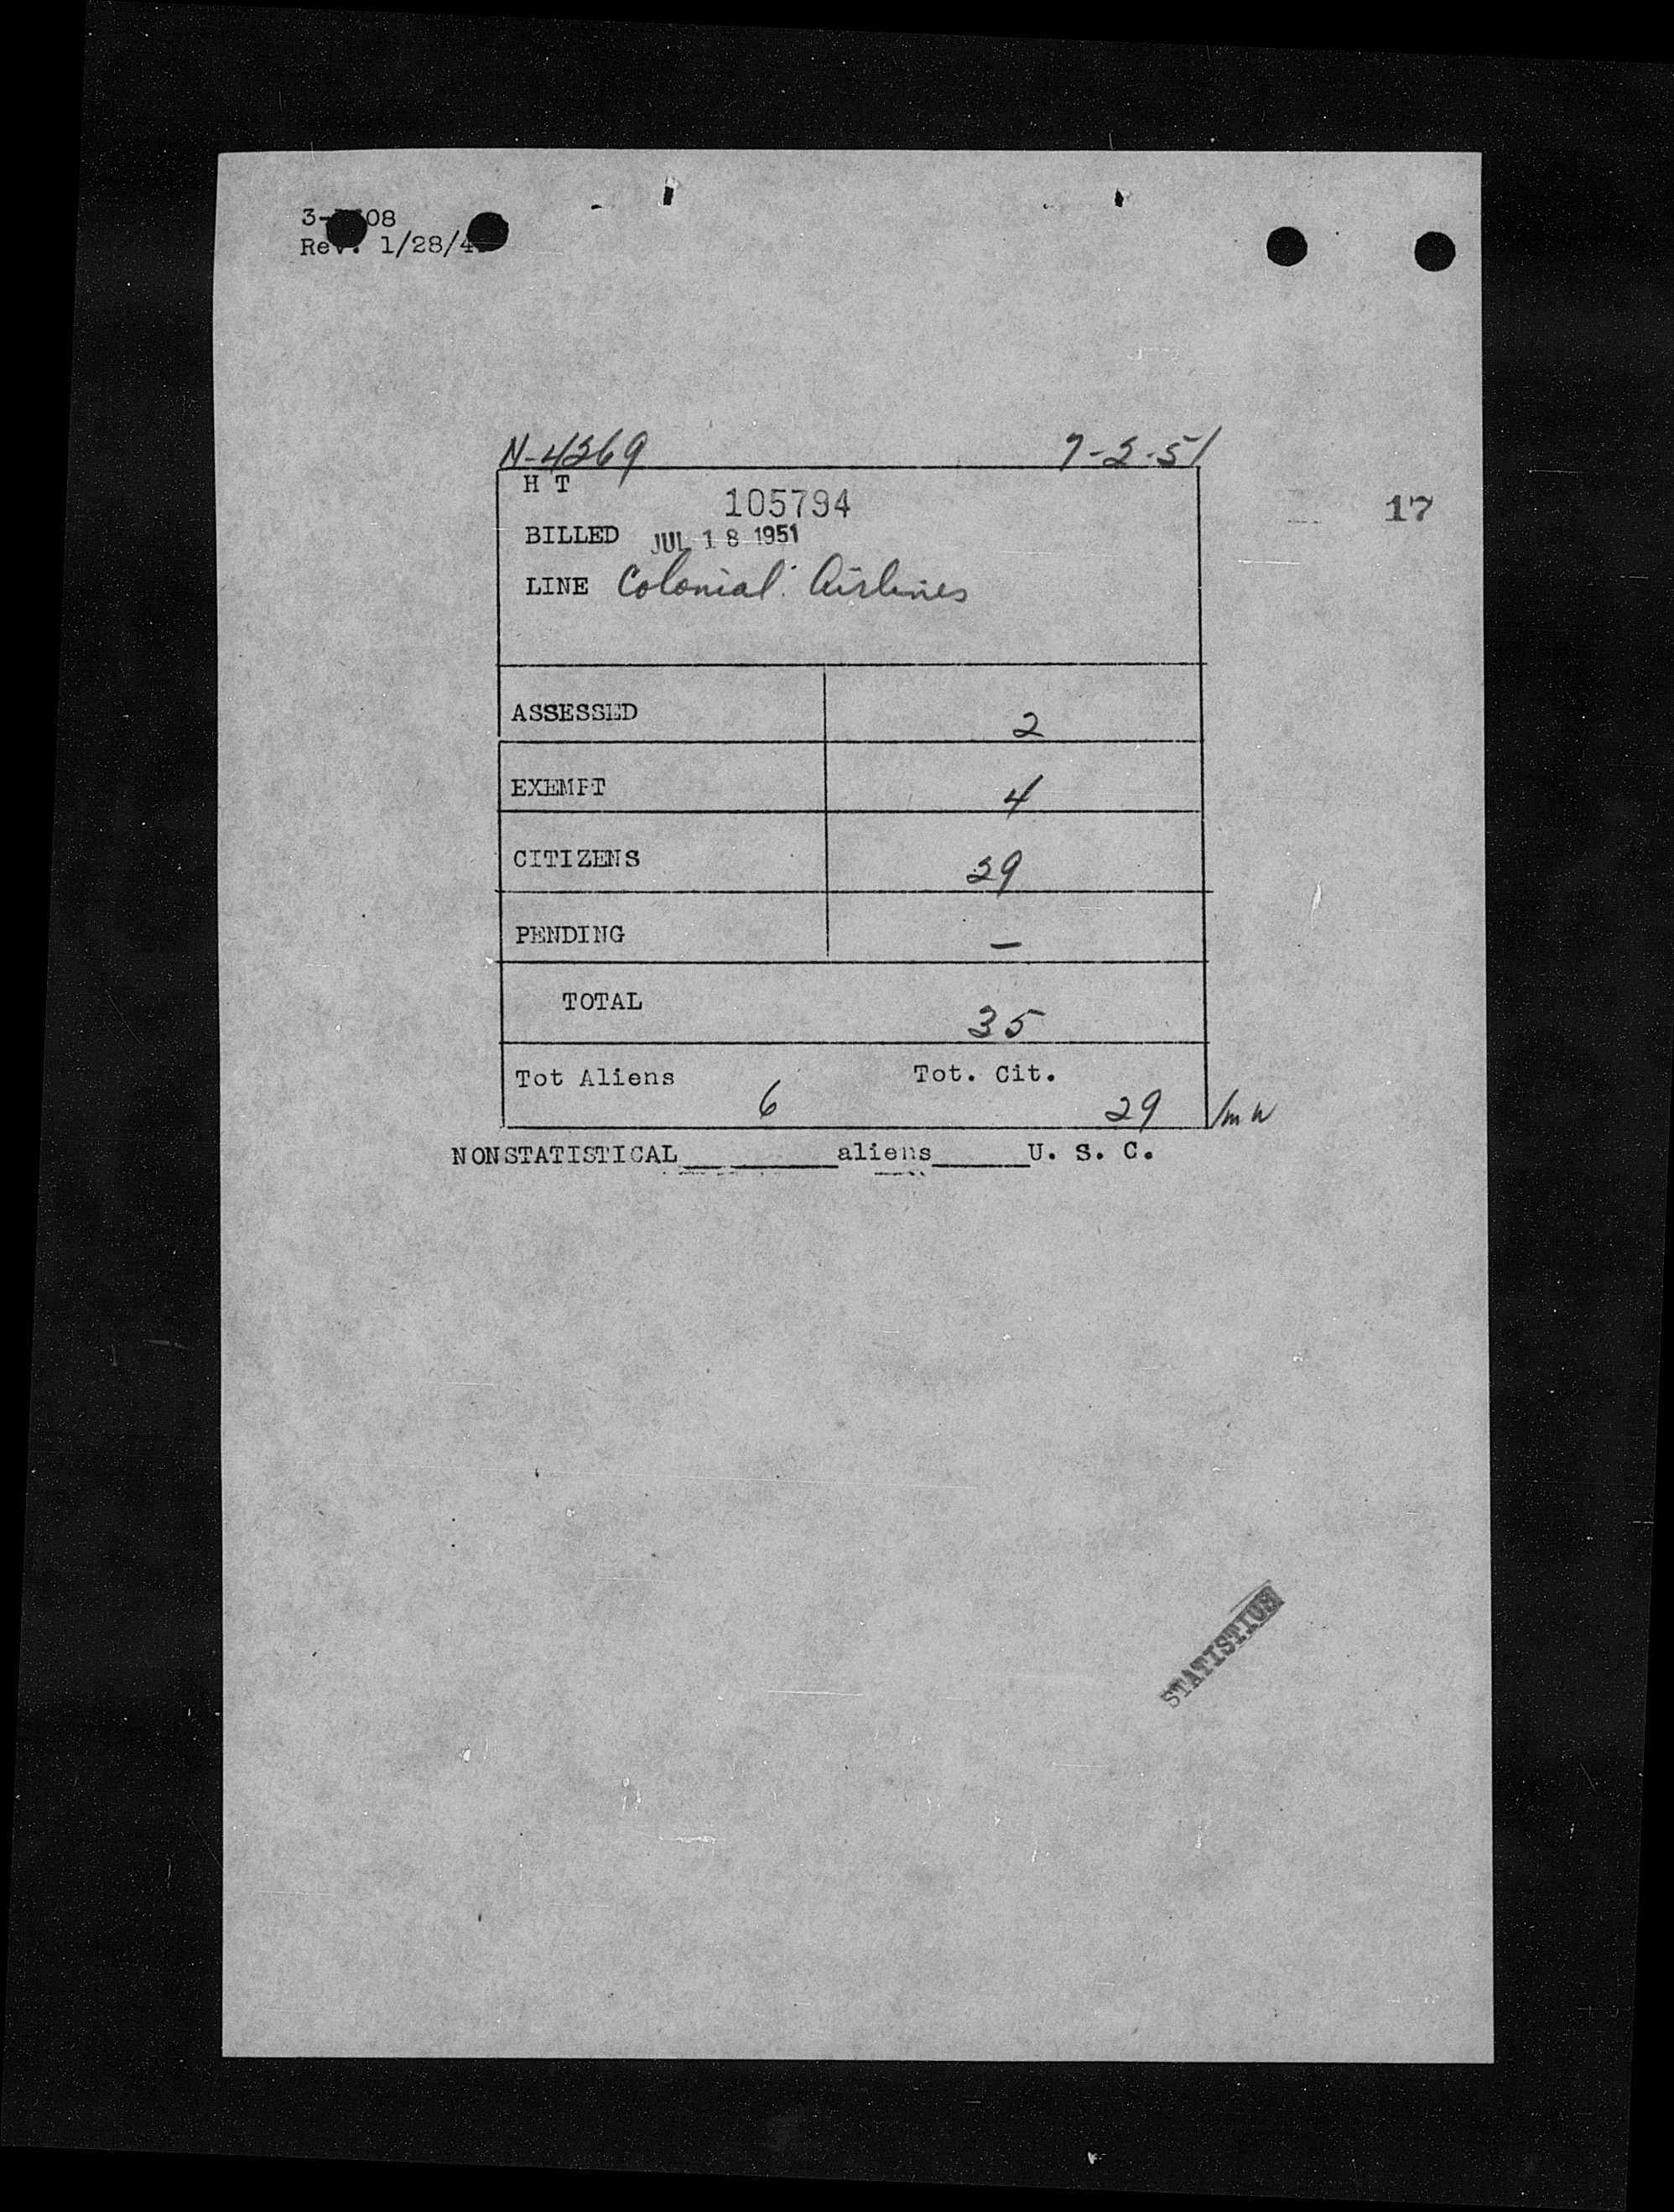 08
1/28/4
N-4269 7-2-51
H T
105794
17
BILLED JUL 18 1951
LINE Colonial Airlines
ASSESSED 2
EXEMPT 4
CITIZENS 29
PENDING –
TOTAL 35
Tot Aliens 6 Tot. Cit. 29
NONSTATISTICAL________aliens_____U. S. C.
STATISTICS